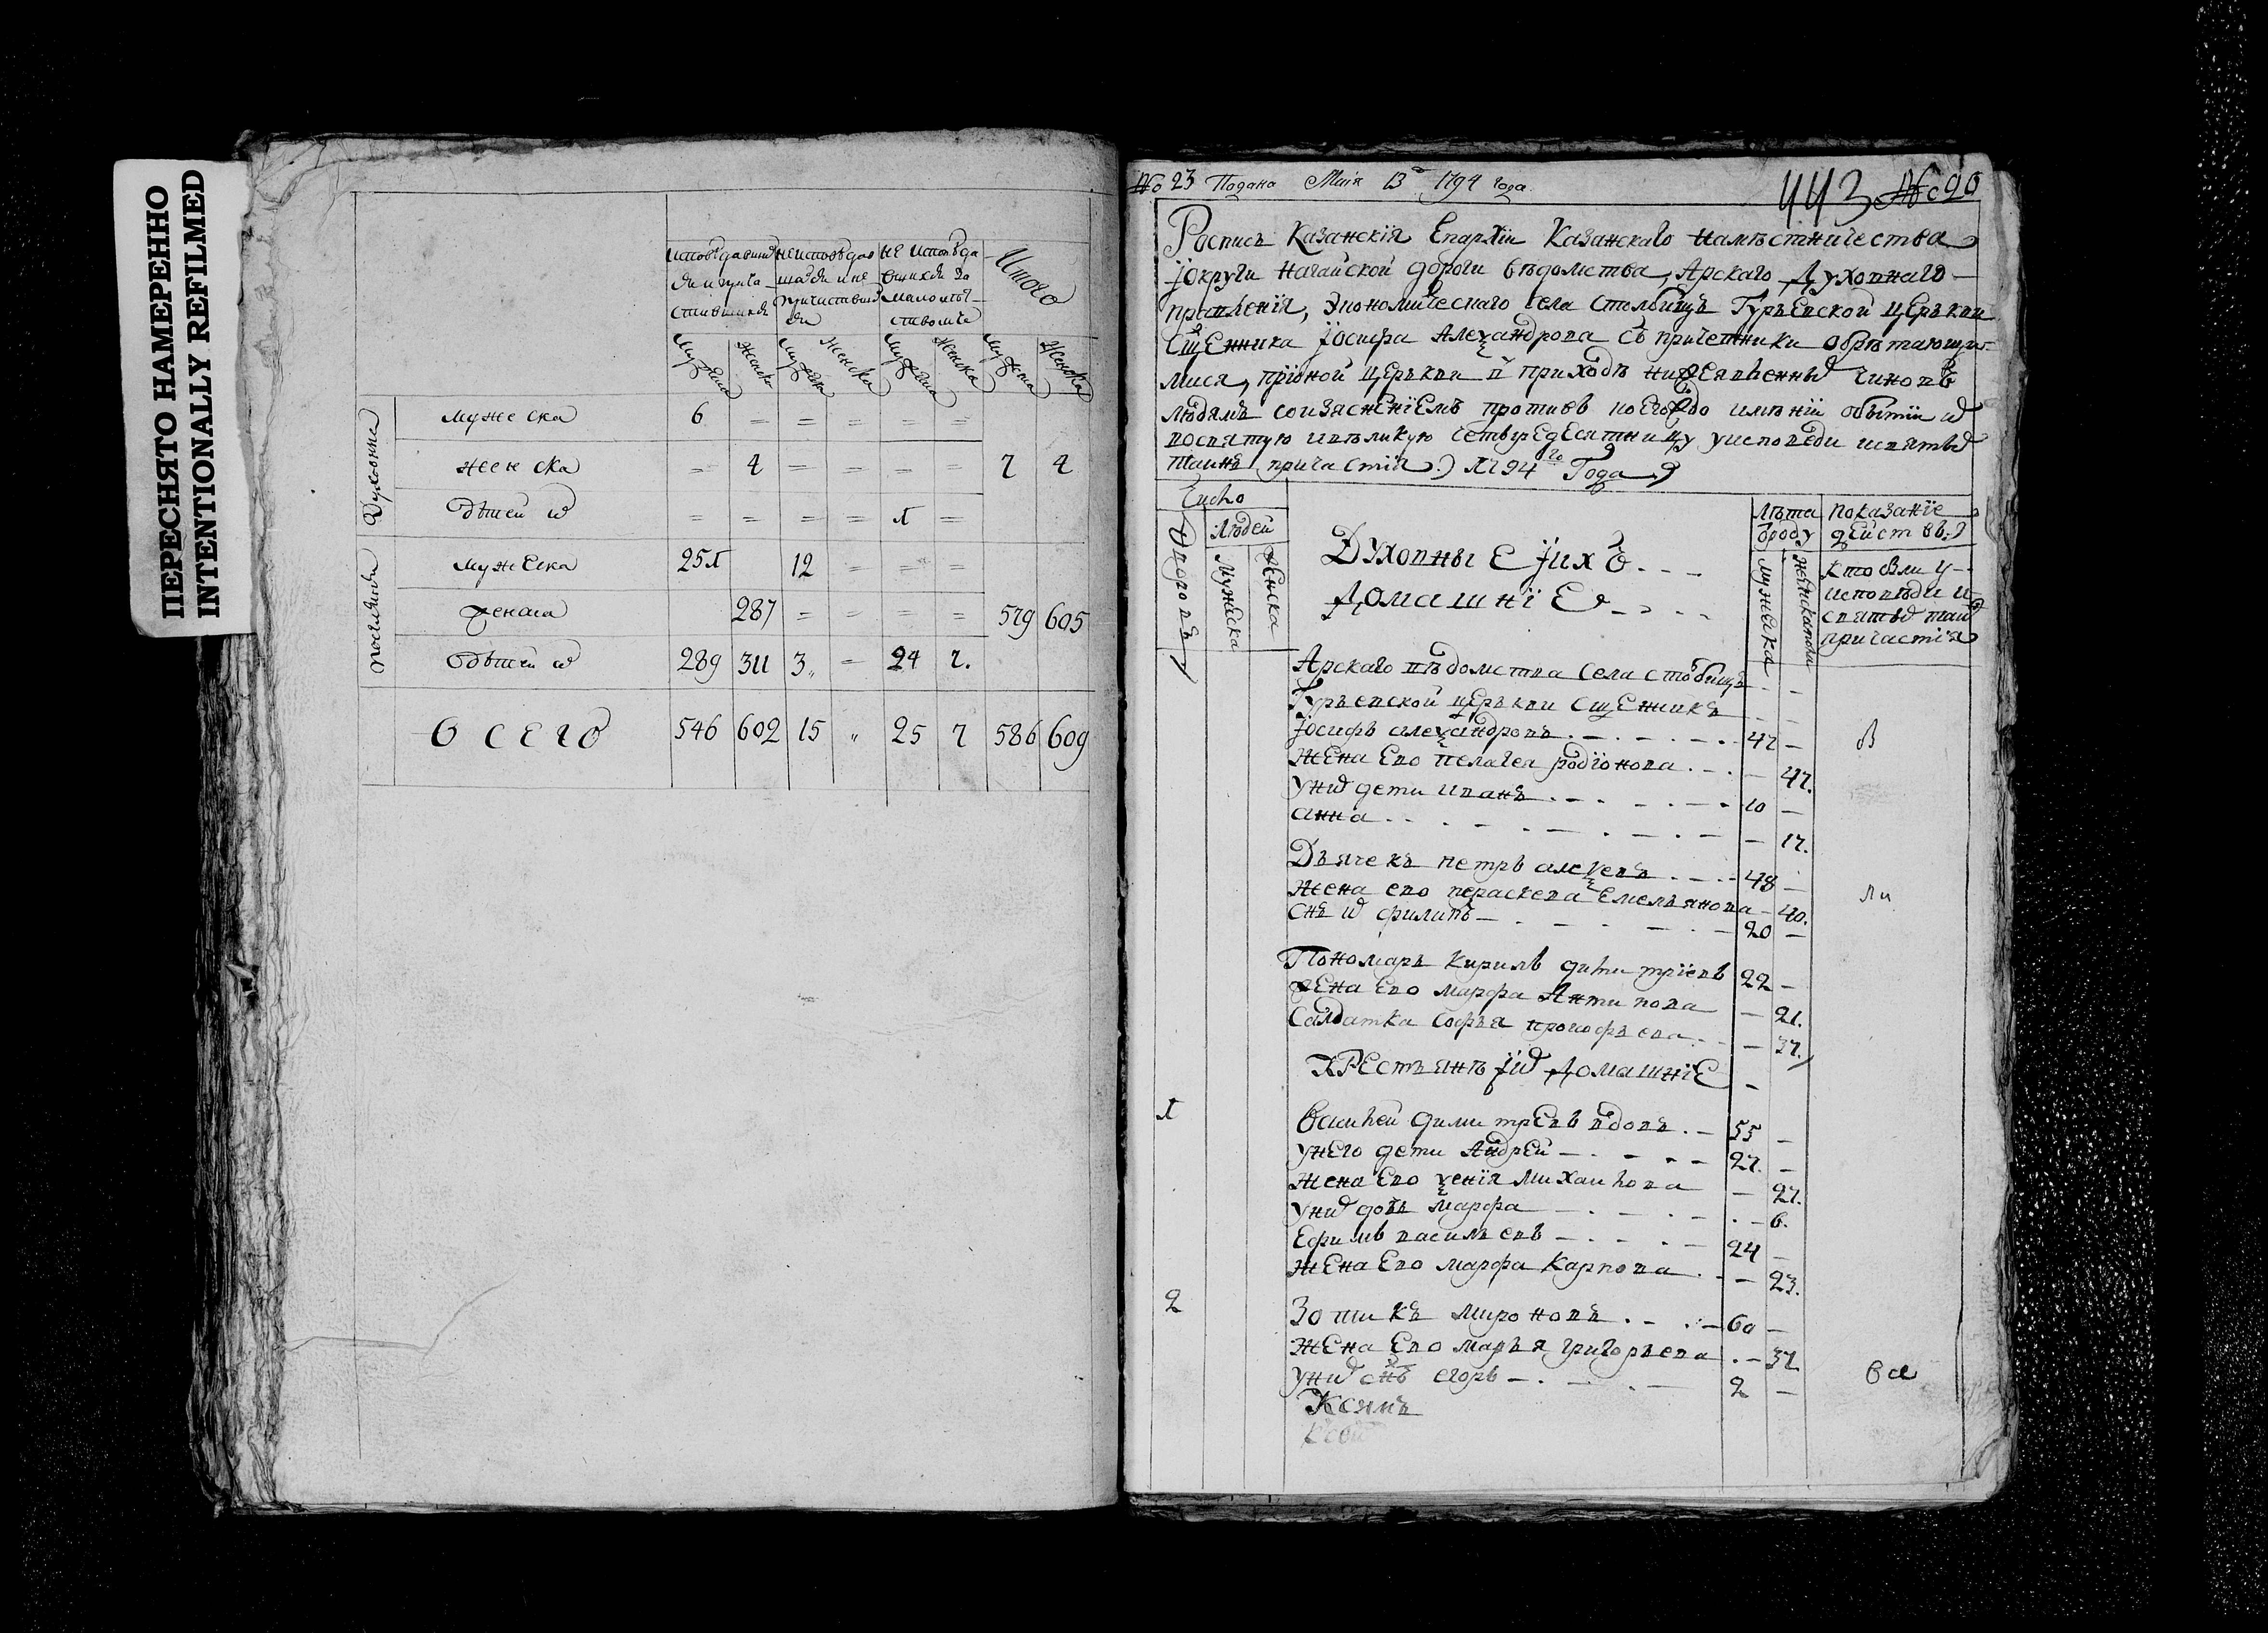 ПЕРЕСНЯТО НАМЕРЕННО
INTENTIONALLY REFILMED
Итого
мужеска женска мужеска женска мужеска женска мужеска женска
Духовна
мужеска 6 = = = = = =
женска = 4 = = = = 7 4
= = = = 1 =
мужеска 251 12 = = =
287 = = = = 579 605
289 311 3 = 24 7.
Всего 546 602 15 „ 25 7 586 609
№ 23 Подана Маія 13 1794 года.
443 № 20
Роспись Казанскія Епархіи Казанскаго намѣстничества
округи Нагайской дороги вѣдомства, Арскаго Духовнаго
правленія, Экономическаго села Столбищъ Гурьевской церькви
Сщенника Іосифа Алеѯандрова съ причетники обрѣтающи-
мися, при оной церькви в приходѣ чиновъ
людямъ соизясненіемъ противъ коегождо имѣни о бытіи
четыредесятницу у исповеди
таинъ причастія 1794го Года
Число
Дворовъ
Людей
Мужеска
Женска
Духовные и ихъ
Домашніе
Лѣта
от роду
мужеска
Показаніе
действъ
кто были у
исповѣди и
святых таинъ
причастія
Арскаго вѣдомства села столбищъ
Гурьевской церькви сщенникъ
Іосифъ алеѯандровъ 47 —
Жена Ево Пелагея родіонова — 47.
У них дети иванъ 10 —
анна — 17.
Дьячекъ петръ алеѯевъ 48 —
Жена ево параскева Емельянова — 40.
снъ их филипъ 20 —
Пономарь Кирилъ димитріевъ 22 —
Жена Ево марфа Антипова — 21.
Салдатка софья прокофьева — 37.
Крестьянѣ и их Домашніе
1 Василей димитревъ вдовъ 55 —
У него дети Андрей 27. —
Жена Ево ѯенія Михаилова — 27.
У них дочь Марфа — 6.
Ефимъ васильевъ 24 —
Жена Ево марфа Карпова — 23.
2 Зотикъ мироновъ 60 —
Жена Ево марья григорьева — 37
У них снъ егоръ 2 —
В
ли
все
Ксимъ